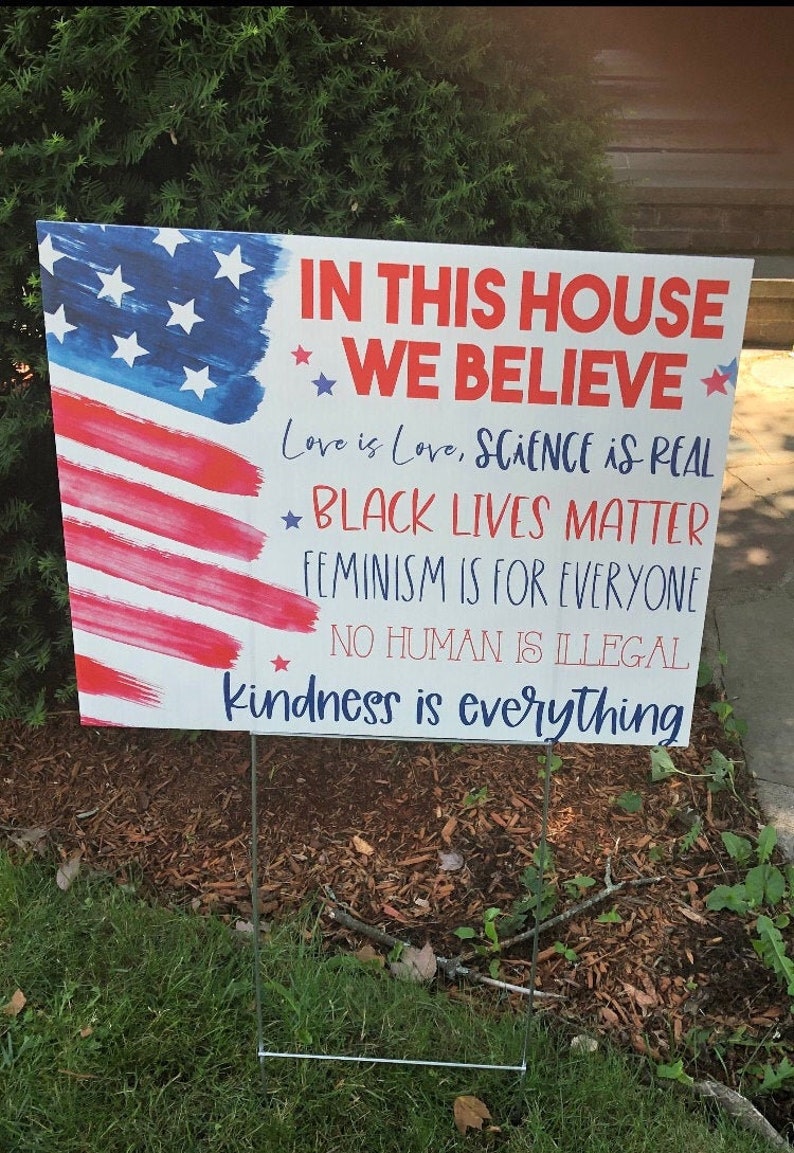 IN THIS HOUSE
WE BELIEVE
Love is Love, SCiENCE iS REAL
BLACK LIVES MATTER
FEMINISM IS FOR EVERYONE
NO HUMAN IS ILLEGAL
kindness is everything